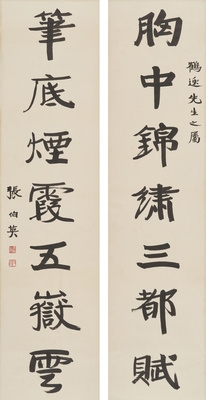 胸中錦繡三都賦
鶴逸先生之屬
筆底煙霞五嶽雲
張伯英